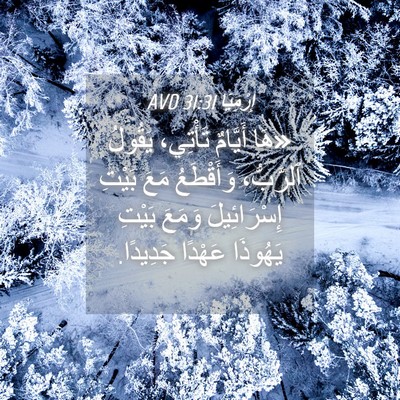 إرميا 31:31 AVD
«هَا أَيَّامٌ تَأْتِي، يَقُولُ
الرَّبُّ، وَأَقْطَعُ مَعَ بَيْتِ
إِسْرَائِيلَ وَمَعَ بَيْتِ
يَهُوذَا عَهْدًا جَدِيدًا.